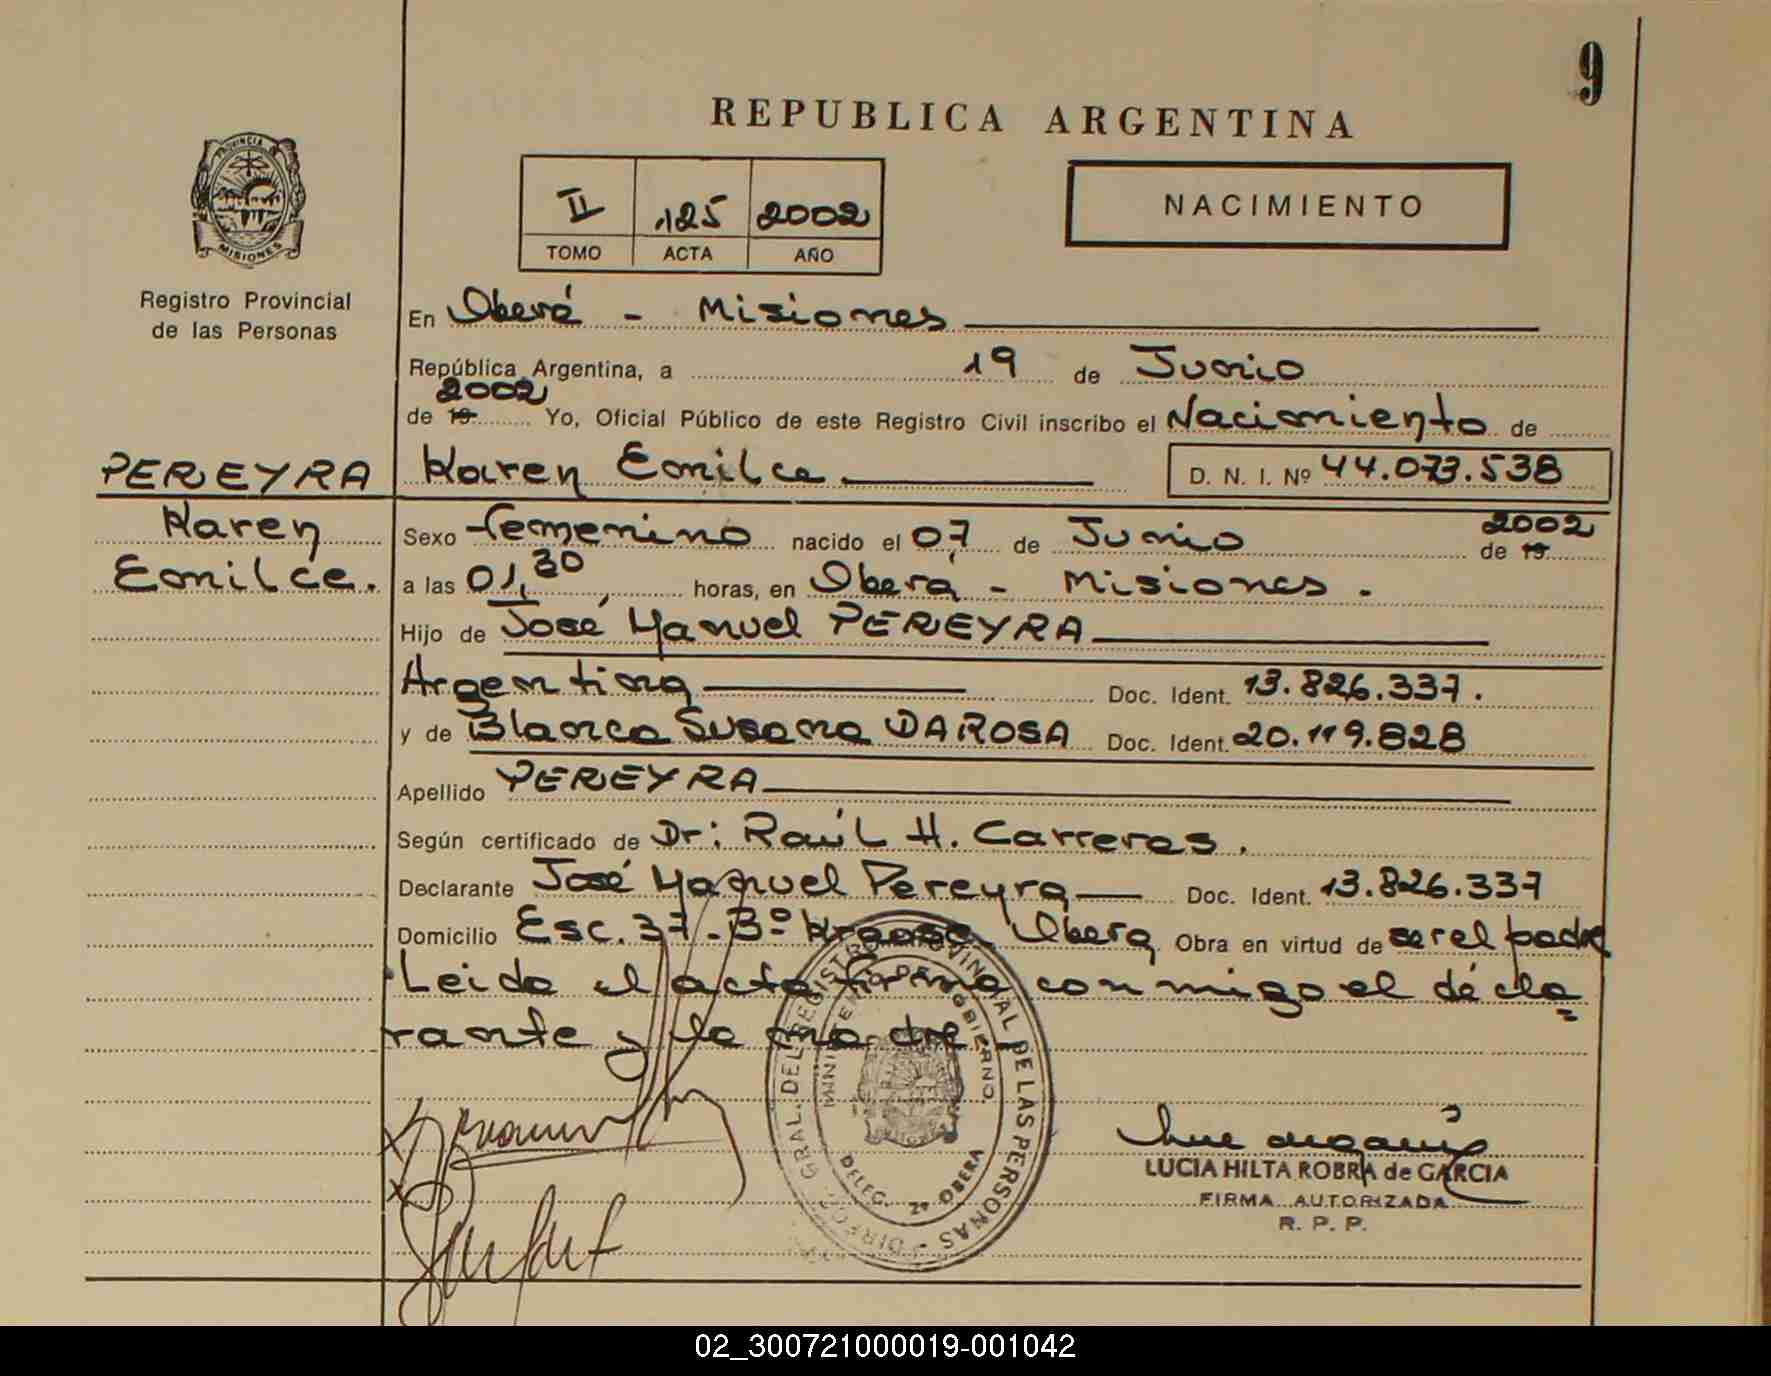 9
REPUBLICA ARGENTINA
PROVINCIA DE
MISIONES
II 125 2002
TOMO ACTA AÑO
NACIMIENTO
Registro Provincial
de las Personas
En Oberá - Misiones
República Argentina, a 19 de Junio
2002
de 19 Yo, Oficial Público de este Registro Civil inscribo el Nacimiento de
PEREYRA Karen Emilce D. N. I. Nº 44.073.538
Karen
Emilce.
2002
Sexo femenino nacido el 07 de Junio de 19
a las 01,30 horas, en Oberá - Misiones.
Hijo de José Manuel PEREYRA
Argentina Doc. Ident. 13.826.337.
y de Blanca Susana DA ROSA Doc. Ident. 20.119.828
Apellido PEREYRA
Según certificado de Dr: Raúl H. Carreras.
Declarante José Manuel Pereyra Doc. Ident. 13.826.337
Domicilio Esc. 37 - Bº Krause Oberá Obra en virtud de ser el padre
Leida el acta firma conmigo el decla
rante y la madre
DIREC. GRAL. DEL REGISTRO PROVINCIAL DE LAS PERSONAS
MINISTERIO DE GOBIERNO
DELEG. 2º OBERA
LUCIA HILTA ROBRA de GARCIA
FIRMA AUTORIZADA
R. P. P.
02_300721000019-001042